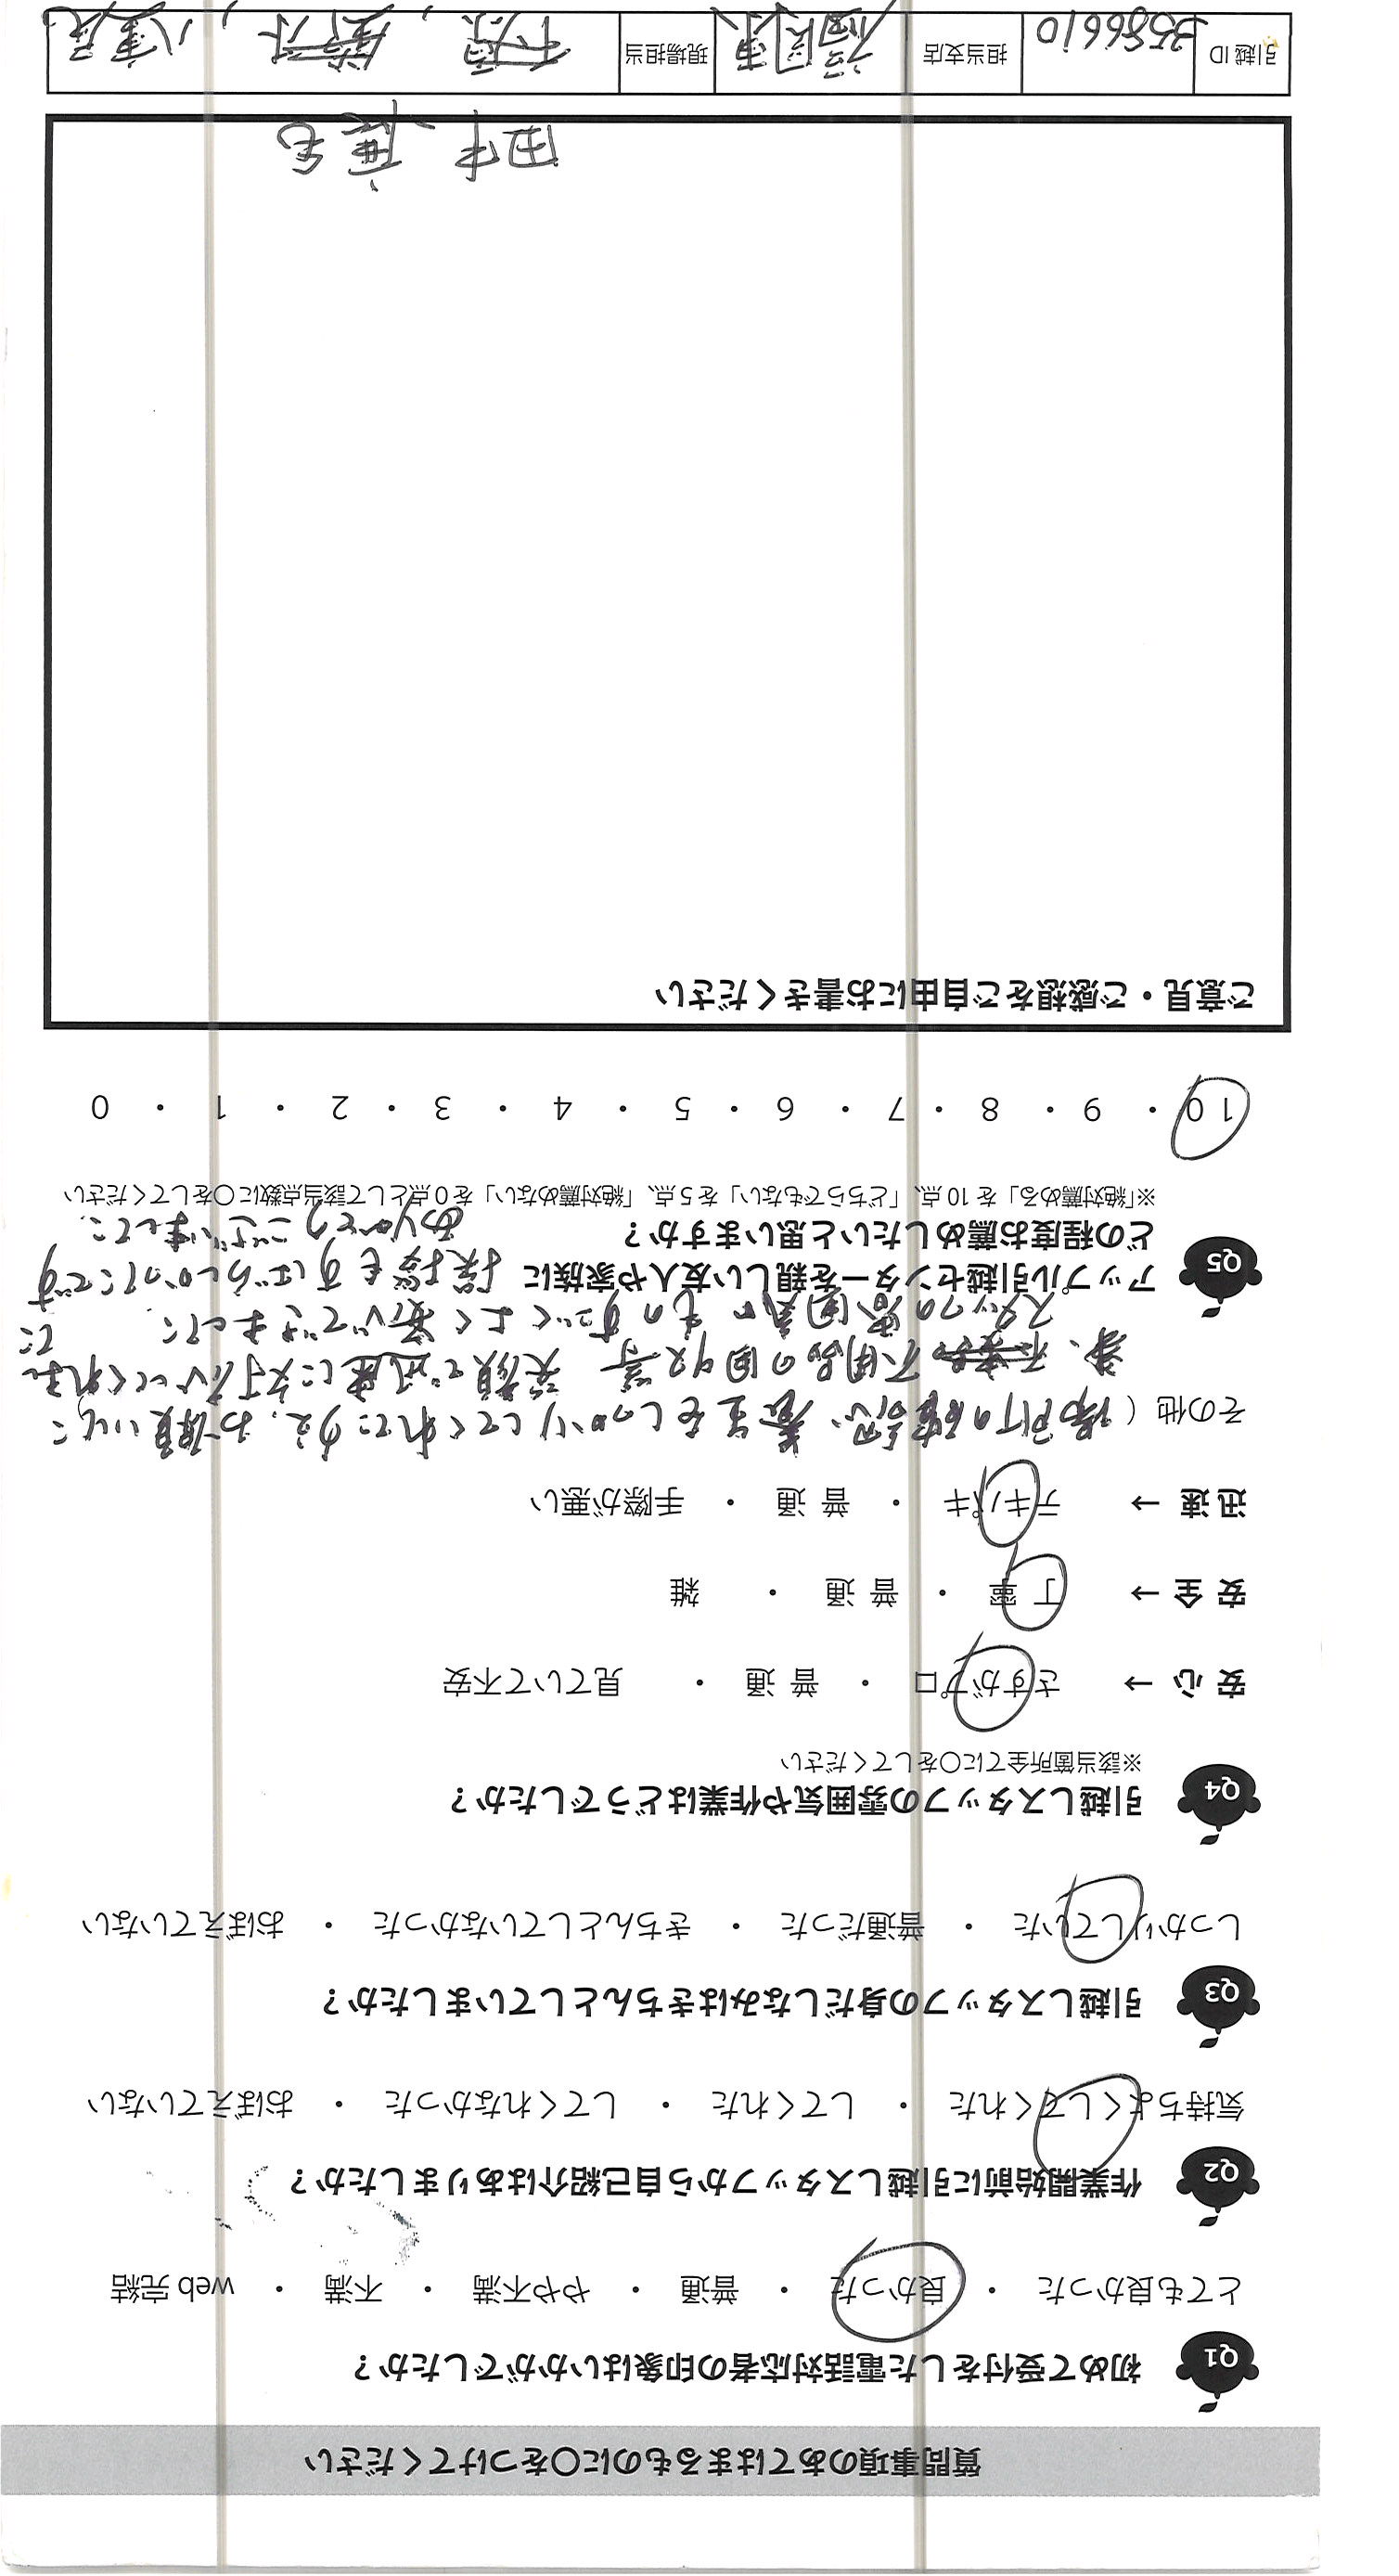 質問事項のあてはまるものに〇をつけてください
Q1 初めて受付をした電話対応者の印象はいかがでしたか？
とても良かった ・ 良かった ・ 普通 ・ やや不満 ・ 不満 ・ web 完結
Q2 作業開始前に引越しスタッフから自己紹介はありましたか？
気持ちよくしてくれた ・ してくれた ・ してくれなかった ・ おぼえていない
Q3 引越しスタッフの身だしなみはきちんとしていましたか？
しっかりしていた ・ 普通だった ・ きちんとしていなかった ・ おぼえていない
Q4 引越しスタッフの雰囲気や作業はどうでしたか？
※該当箇所全てに〇をしてください
安心 → さすがプロ ・ 普通 ・ 見ていて不安
安全 → 丁寧 ・ 普通 ・ 雑
迅速 → テキパキ ・ 普通 ・ 手際が悪い
その他 ( 場所の確認、養生をしっかりしてくれてりえ、お願いしてこ
不用品の回収等 笑顔で迅速に対応してくれました
スタッフの雰囲気ものすごくよく安心できました。
挨拶もすばらしかったです
ありがとうございました。
Q5 アップル引越センターを親しい友人や家族に
どの程度お薦めしたいと思いますか？
※「絶対薦める」を 10 点、「どちらでもない」を 5 点、「絶対薦めない」を 0 点として該当点数に〇をしてください
10 ・ 9 ・ 8 ・ 7 ・ 6 ・ 5 ・ 4 ・ 3 ・ 2 ・ 1 ・ 0
ご意見・ご感想をご自由にお書きください
田中
引越 ID 3586610 担当支店 福岡東 現場担当